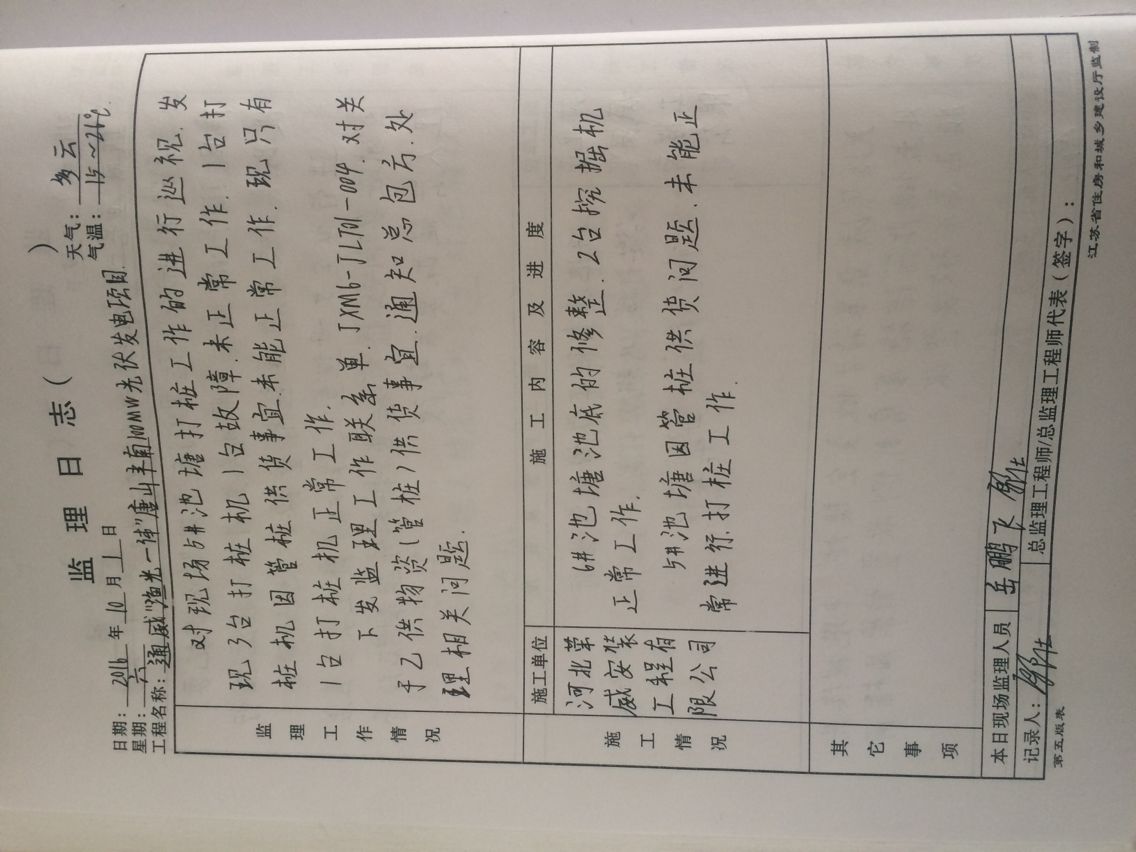 监理日志（ ）
日期：2016年10月1日 天气：多云
星期：六 气温：15~21℃
工程名称：通威"渔光一体"唐山丰南100MW光伏发电项目
监理工作情况
对现场5#池塘打桩工作的进行巡视.发
现3台打桩机1台故障.未正常工作.1台打
桩机因管桩供货事宜.未能正常工作.现只有
1台打桩机正常工作.
下发监理工作联系单.JXMB-JL101-004.对关
于乙供物资(管桩)供货事宜.通知总包方.处
理相关问题.
施工情况
施工单位 施工内容及进度
河北第
威安装
工程有
限公司
6#池塘池底的修整.2台挖掘机
正常工作.
5#池塘因管桩供货问题.未能正
常进行.打桩工作.
其它事项
本日现场监理人员 岳鹏飞
记录人： 总监理工程师/总监理工程师代表（签字）：
第五版表 江苏省住房和城乡建设厅监制